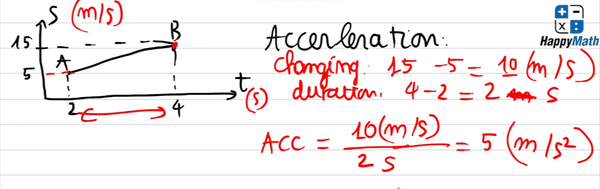 S (m/s)
15
B
A
5
t
(s)
2
4
Accerleration:
changing: 15 - 5 = 10 (m/s)
duration. 4 - 2 = 2 s
ACC = 10(m/s) / 2 s = 5 (m/s²)
HappyMath